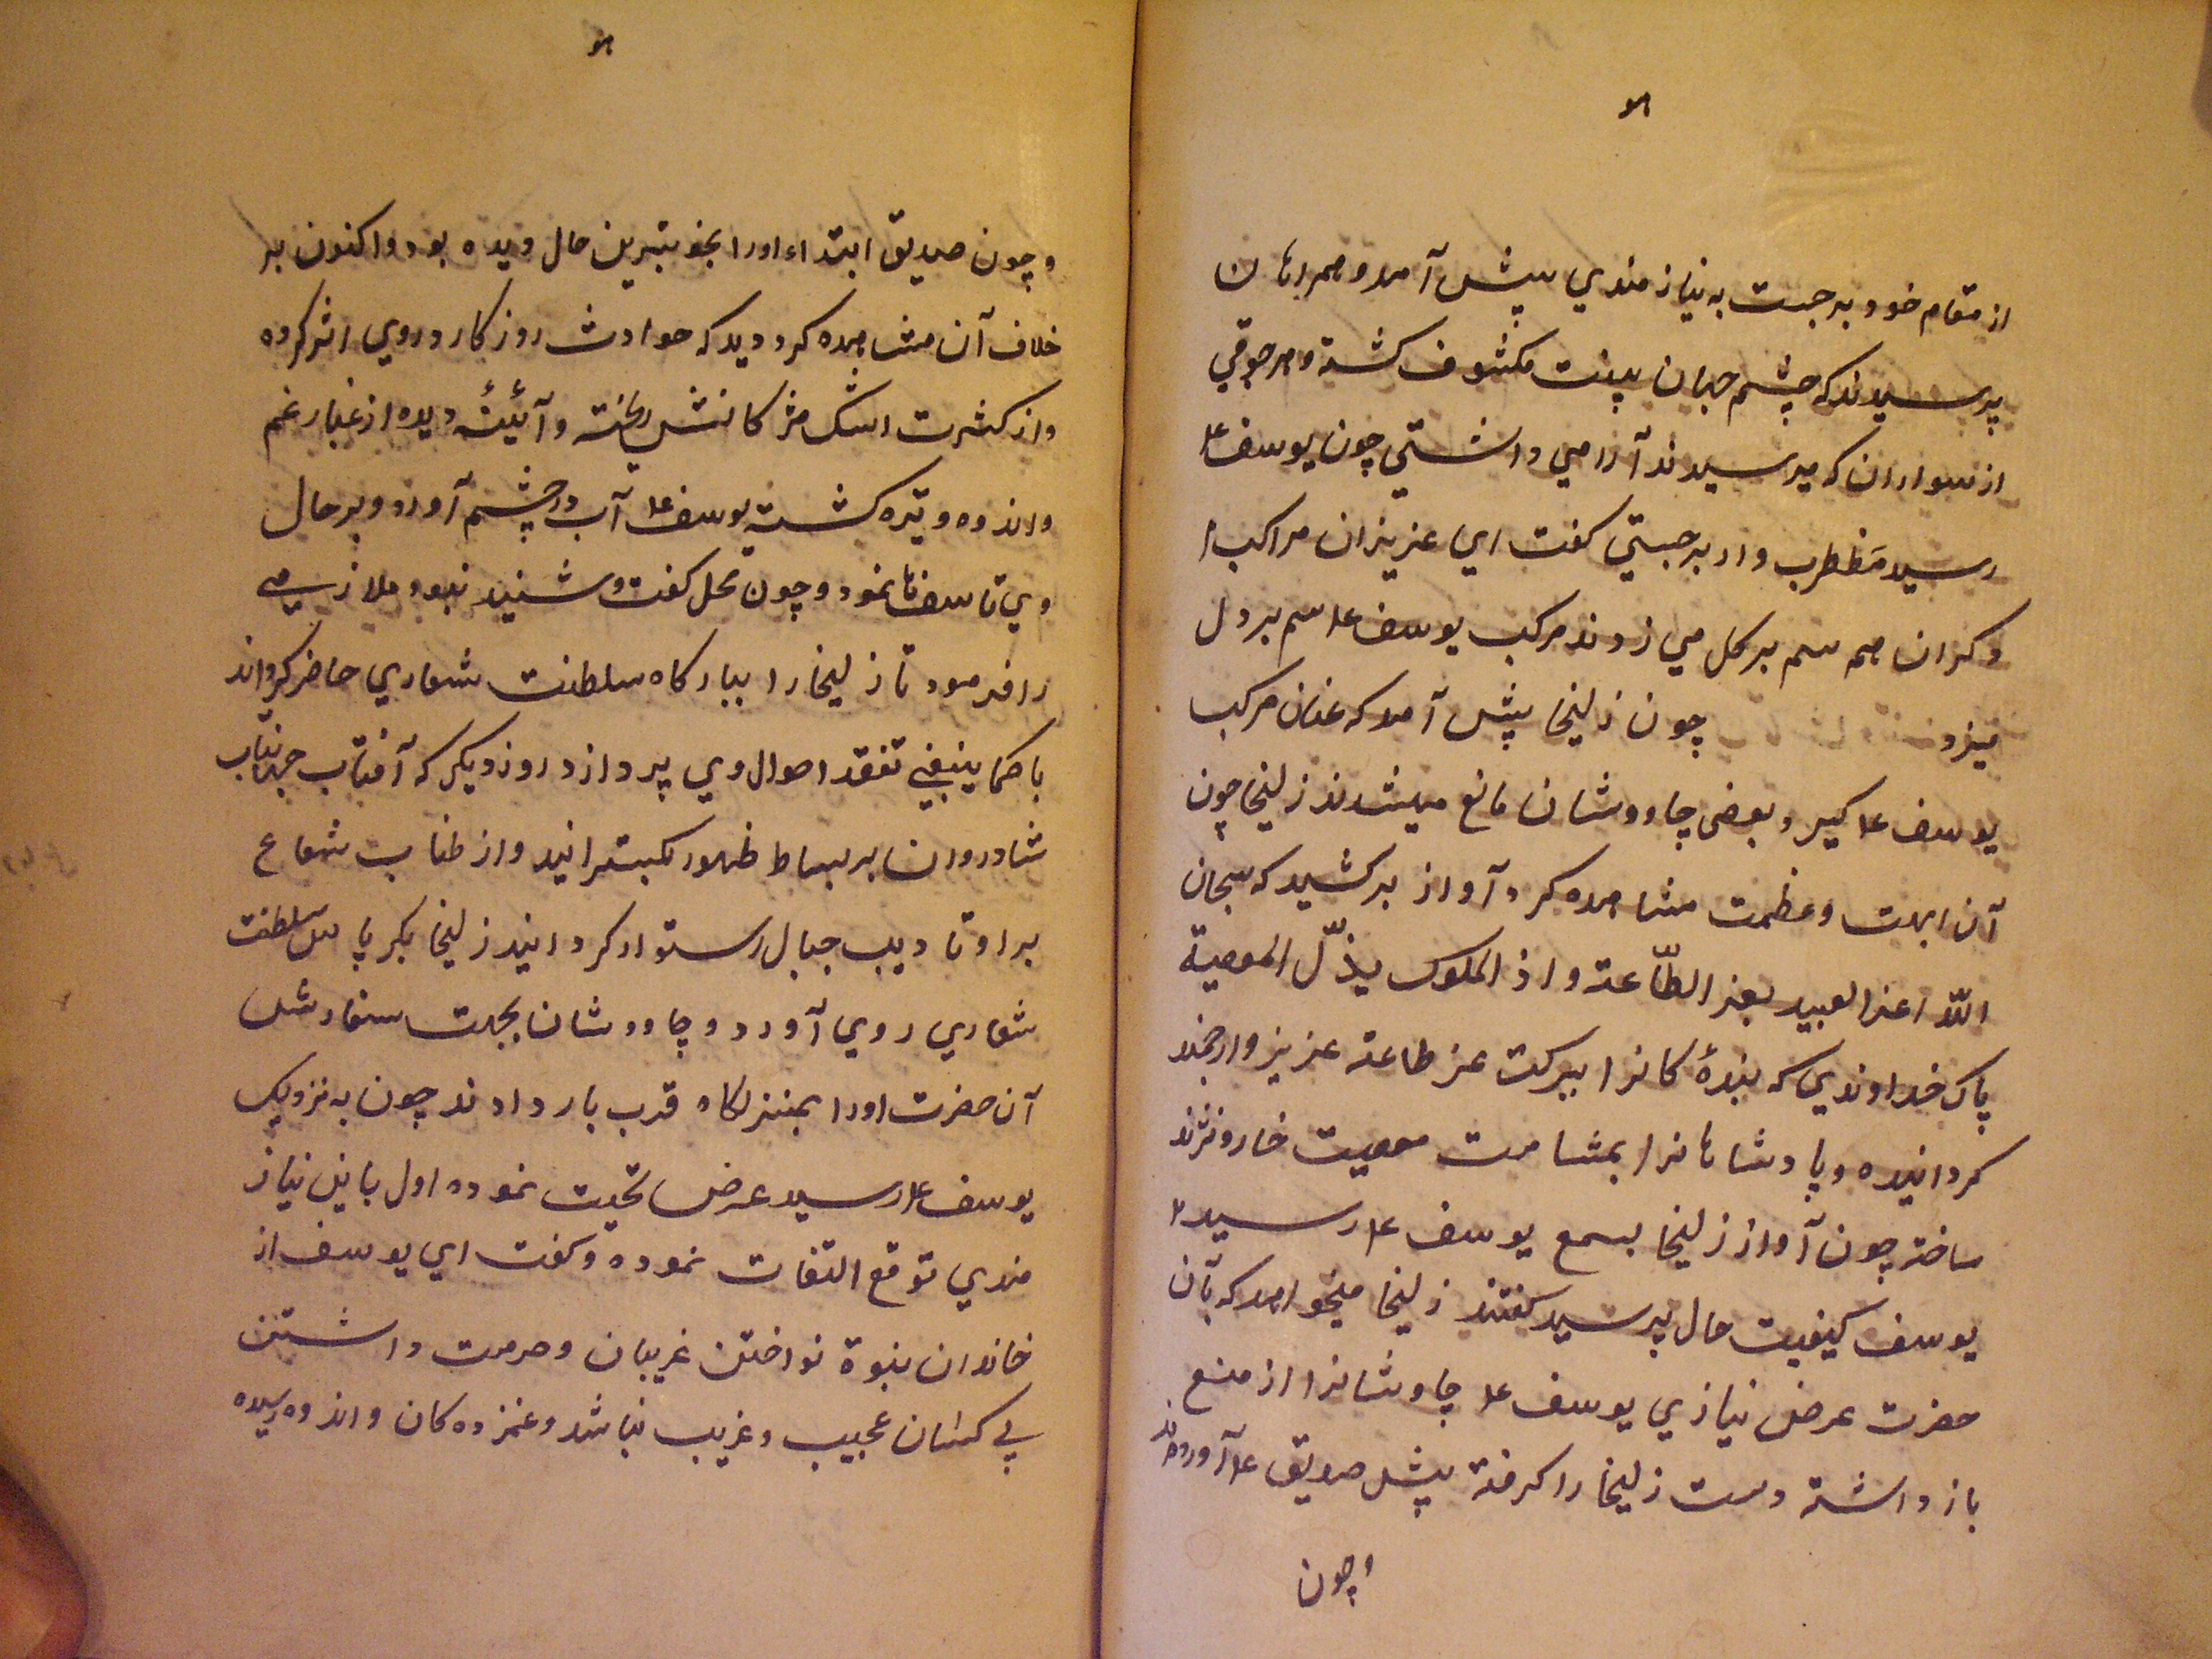 هو
از مقام خود برجست به نیازمندي پیش آمد و همراهان
پرسیدند که چشم جهان بینت مکشوف کشته و هر جوقي
از سواران که میرسیدند آرامي داشتي چون یوسف ع
رسید مضطرب وار برجستي کفت اي عزیزان مراکب
دکران هم سم بر کل مي زدند مرکب یوسف ع سم بر دل
میزد چون زلیخا پیش آمد که عنان مرکب
یوسف ع کیرد بعضي چاووشان مانع میشدند زلیخا چون
آن ابهت و عظمت مشاهده کرد آواز برکشید که سبحان
اللّه اعز العبید بعز الطّاعة و اذ الملوک بذلّ المعصیة
پاک خداوندي که بندۀ کانرا ببرکت عز طاعة عزیز و ارجمند
کردانیده و پادشاهانرا بمشامت معصیت خار و نژند
ساخته چون آواز زلیخا بسمع یوسف ع رسید
یوسف کیفیت حال پرسید کفتند زلیخا میخواهد که بآن
حضرت عرض نیازي یوسف ع چاوشانرا از منع
باز داشته دست زلیخا را کرفته پیش صدیق ع آوردند
و چون
هو
و چون صدیق ابتداء اورا بخوبترین حال دیده بود و اکنون بر
خلاف آن مشاهده کرد دید که حوادث روزکار در وي اثر کرده
و از کثرت اشک مژکانش ریخته و آئینهٔ دیده از غبار غم
و اندوه و تیره کشته یوسف ع آب در چشم آورد و بر حال
وي تاسفها نمود و چون محل کفت و شنید نبود ملازمی
را فرمود تا زلیخا را ببارکاه سلطنت شعاري حاضر کرداند
تا کما ینبغي تفقد احوال وي پردازد روز دیکر که آفتاب جهانتاب
شادروان بر بساط ظهور بکسترانید و از طناب شعاع
بر اوتاد جبال استوار کردانید زلیخا بکریاس سلطنت
شعاري روي آورد و چاووشان بجهت سفارش
آن حضرت اورا بمنزلکاه قرب بار دادند چون به نزدیک
یوسف ع رسید عرض تحیت نموده اول باین نیاز
مندي توقع التفات نموده و کفت اي یوسف از
خاندان نبوة نواختن غریبان و حرمت داشتن
بي کسان عجیب و غریب نباشد و غمزده کان و اندوه رسیده